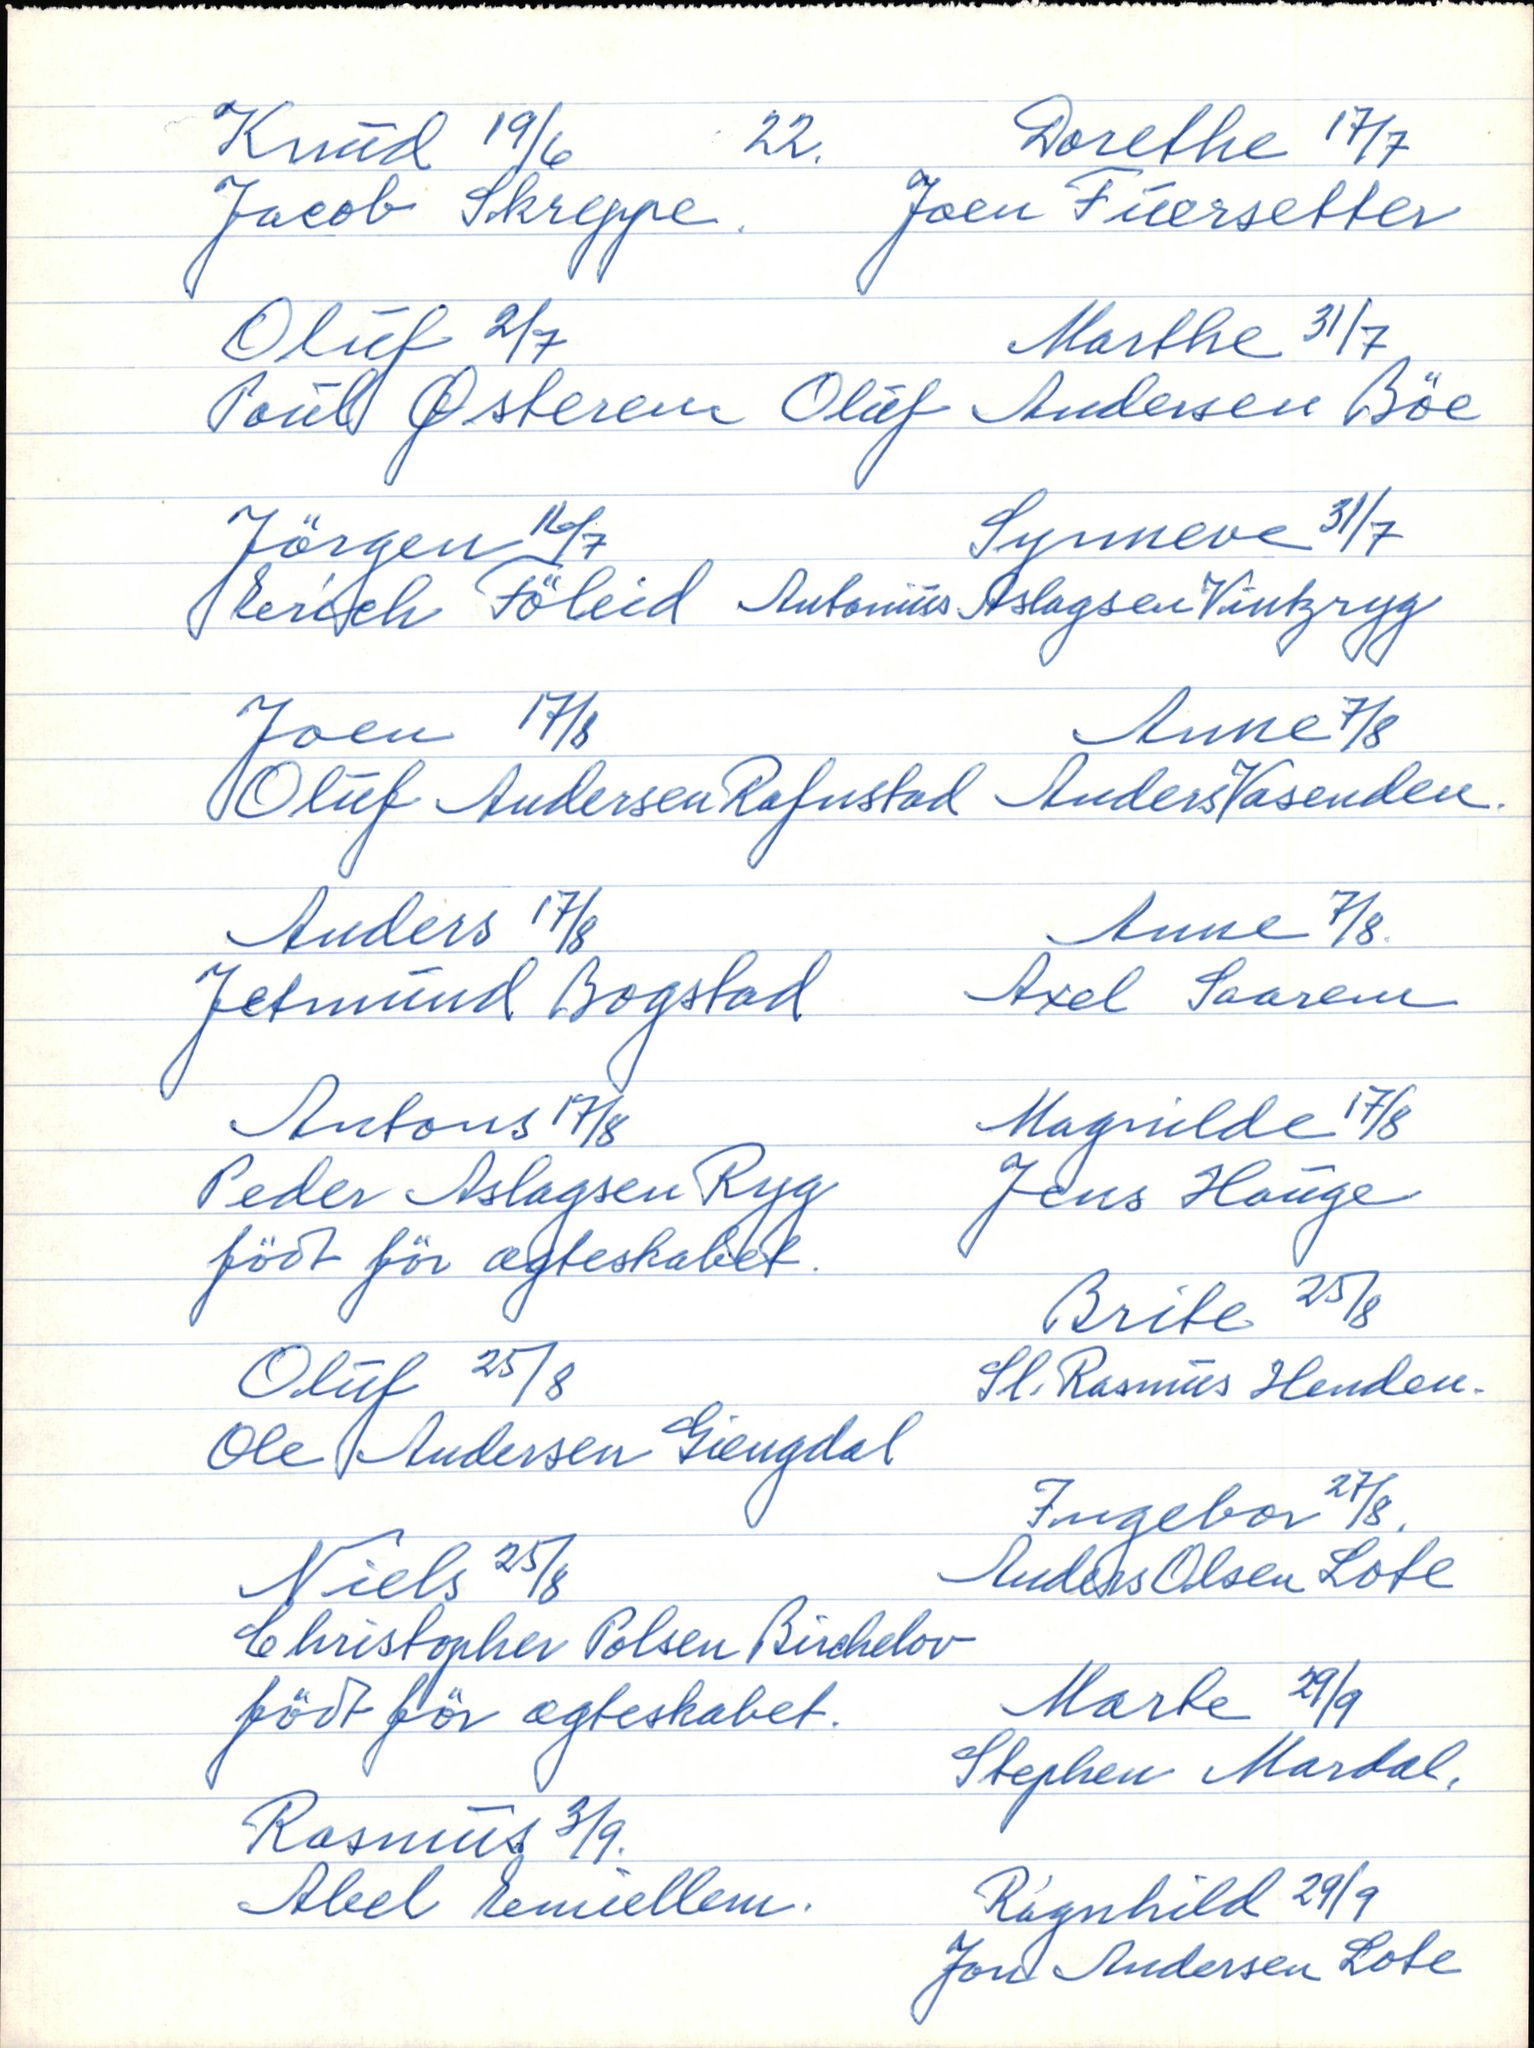 22.
Knud 19/6
Jacob Skreppe.
Oluf 2/7
Poul Østerem
Jörgen 16/7
Erich Föleid
Joen 17/8
Oluf Andersen Rafnstad
Anders 17/8
Jetmund Bogstad
Antons 17/8
Peder Aslagsen Ryg
födt för ægteskabet.
Oluf 25/8
Ole Andersen Giengdal
Niels 25/8
Christopher Polsen Birchelov
födt för ægteskabet.
Rasmus 3/9.
Abel Emiellem.
Dorethe 17/7
Joen Fuersetter
Marthe 31/7
Oluf Andersen Böe
Synneve 31/7
Antonius Aslagsen Vintzryg
Anne 7/8
Anders Vasenden.
Anne 7/8.
Axel Saarem
Magnilde 17/8
Jens Houge
Brite 25/8
Sl. Rasmus Henden.
Ingebor 27/8.
Anders Olsen Lote
Marte 29/9
Stephen Mardal.
Ragnhild 29/9
Jon Andersen Lote